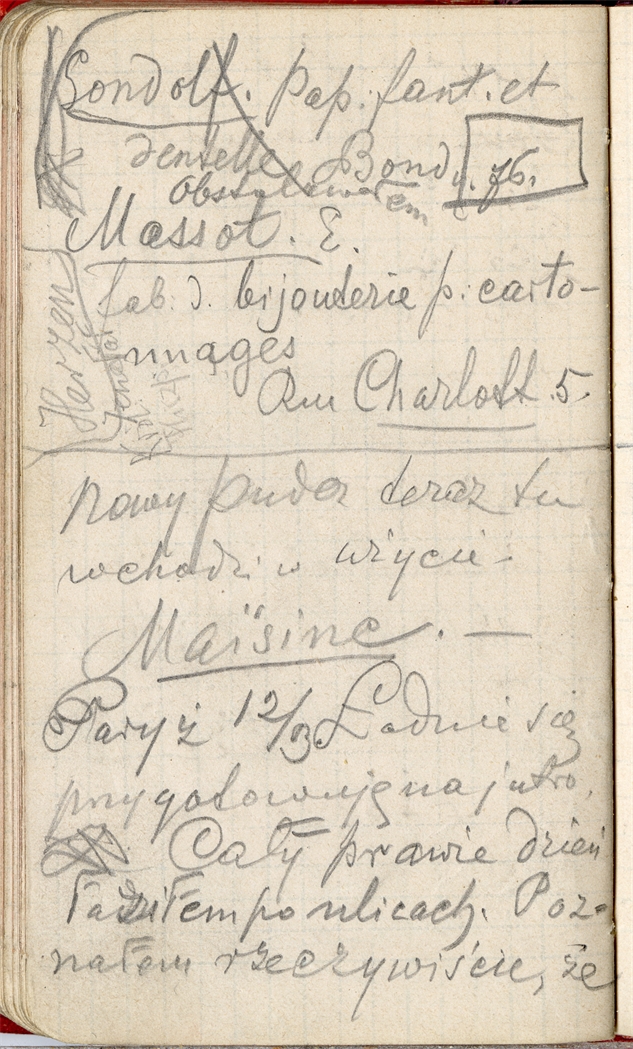 Gondolf. Pap. fant. et
dentelle Bondy. 76.
Obstalowałem
Massot. E.
fab. d. bijouderie p. carto-
nnages
Rue Charlott. 5.
Herzen
nowy puder teraz tu
wchodzi w użycie -
Maïsine. —
Paryż 12/3 Ładnie się
przygotowuję na jutro.
Cały prawie dzień
łaziłem po ulicach. Poz-
nałem rzeczywiście, że